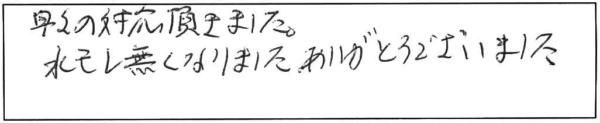 早々の対応頂きました。
水モレ無くなりました。ありがとうございました